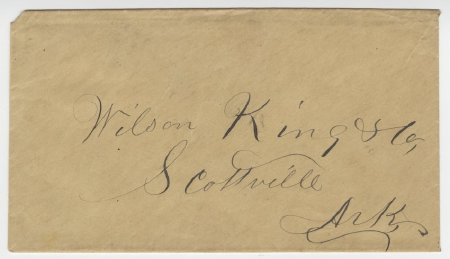 Wilson King & Co,
Scottville
Ark,